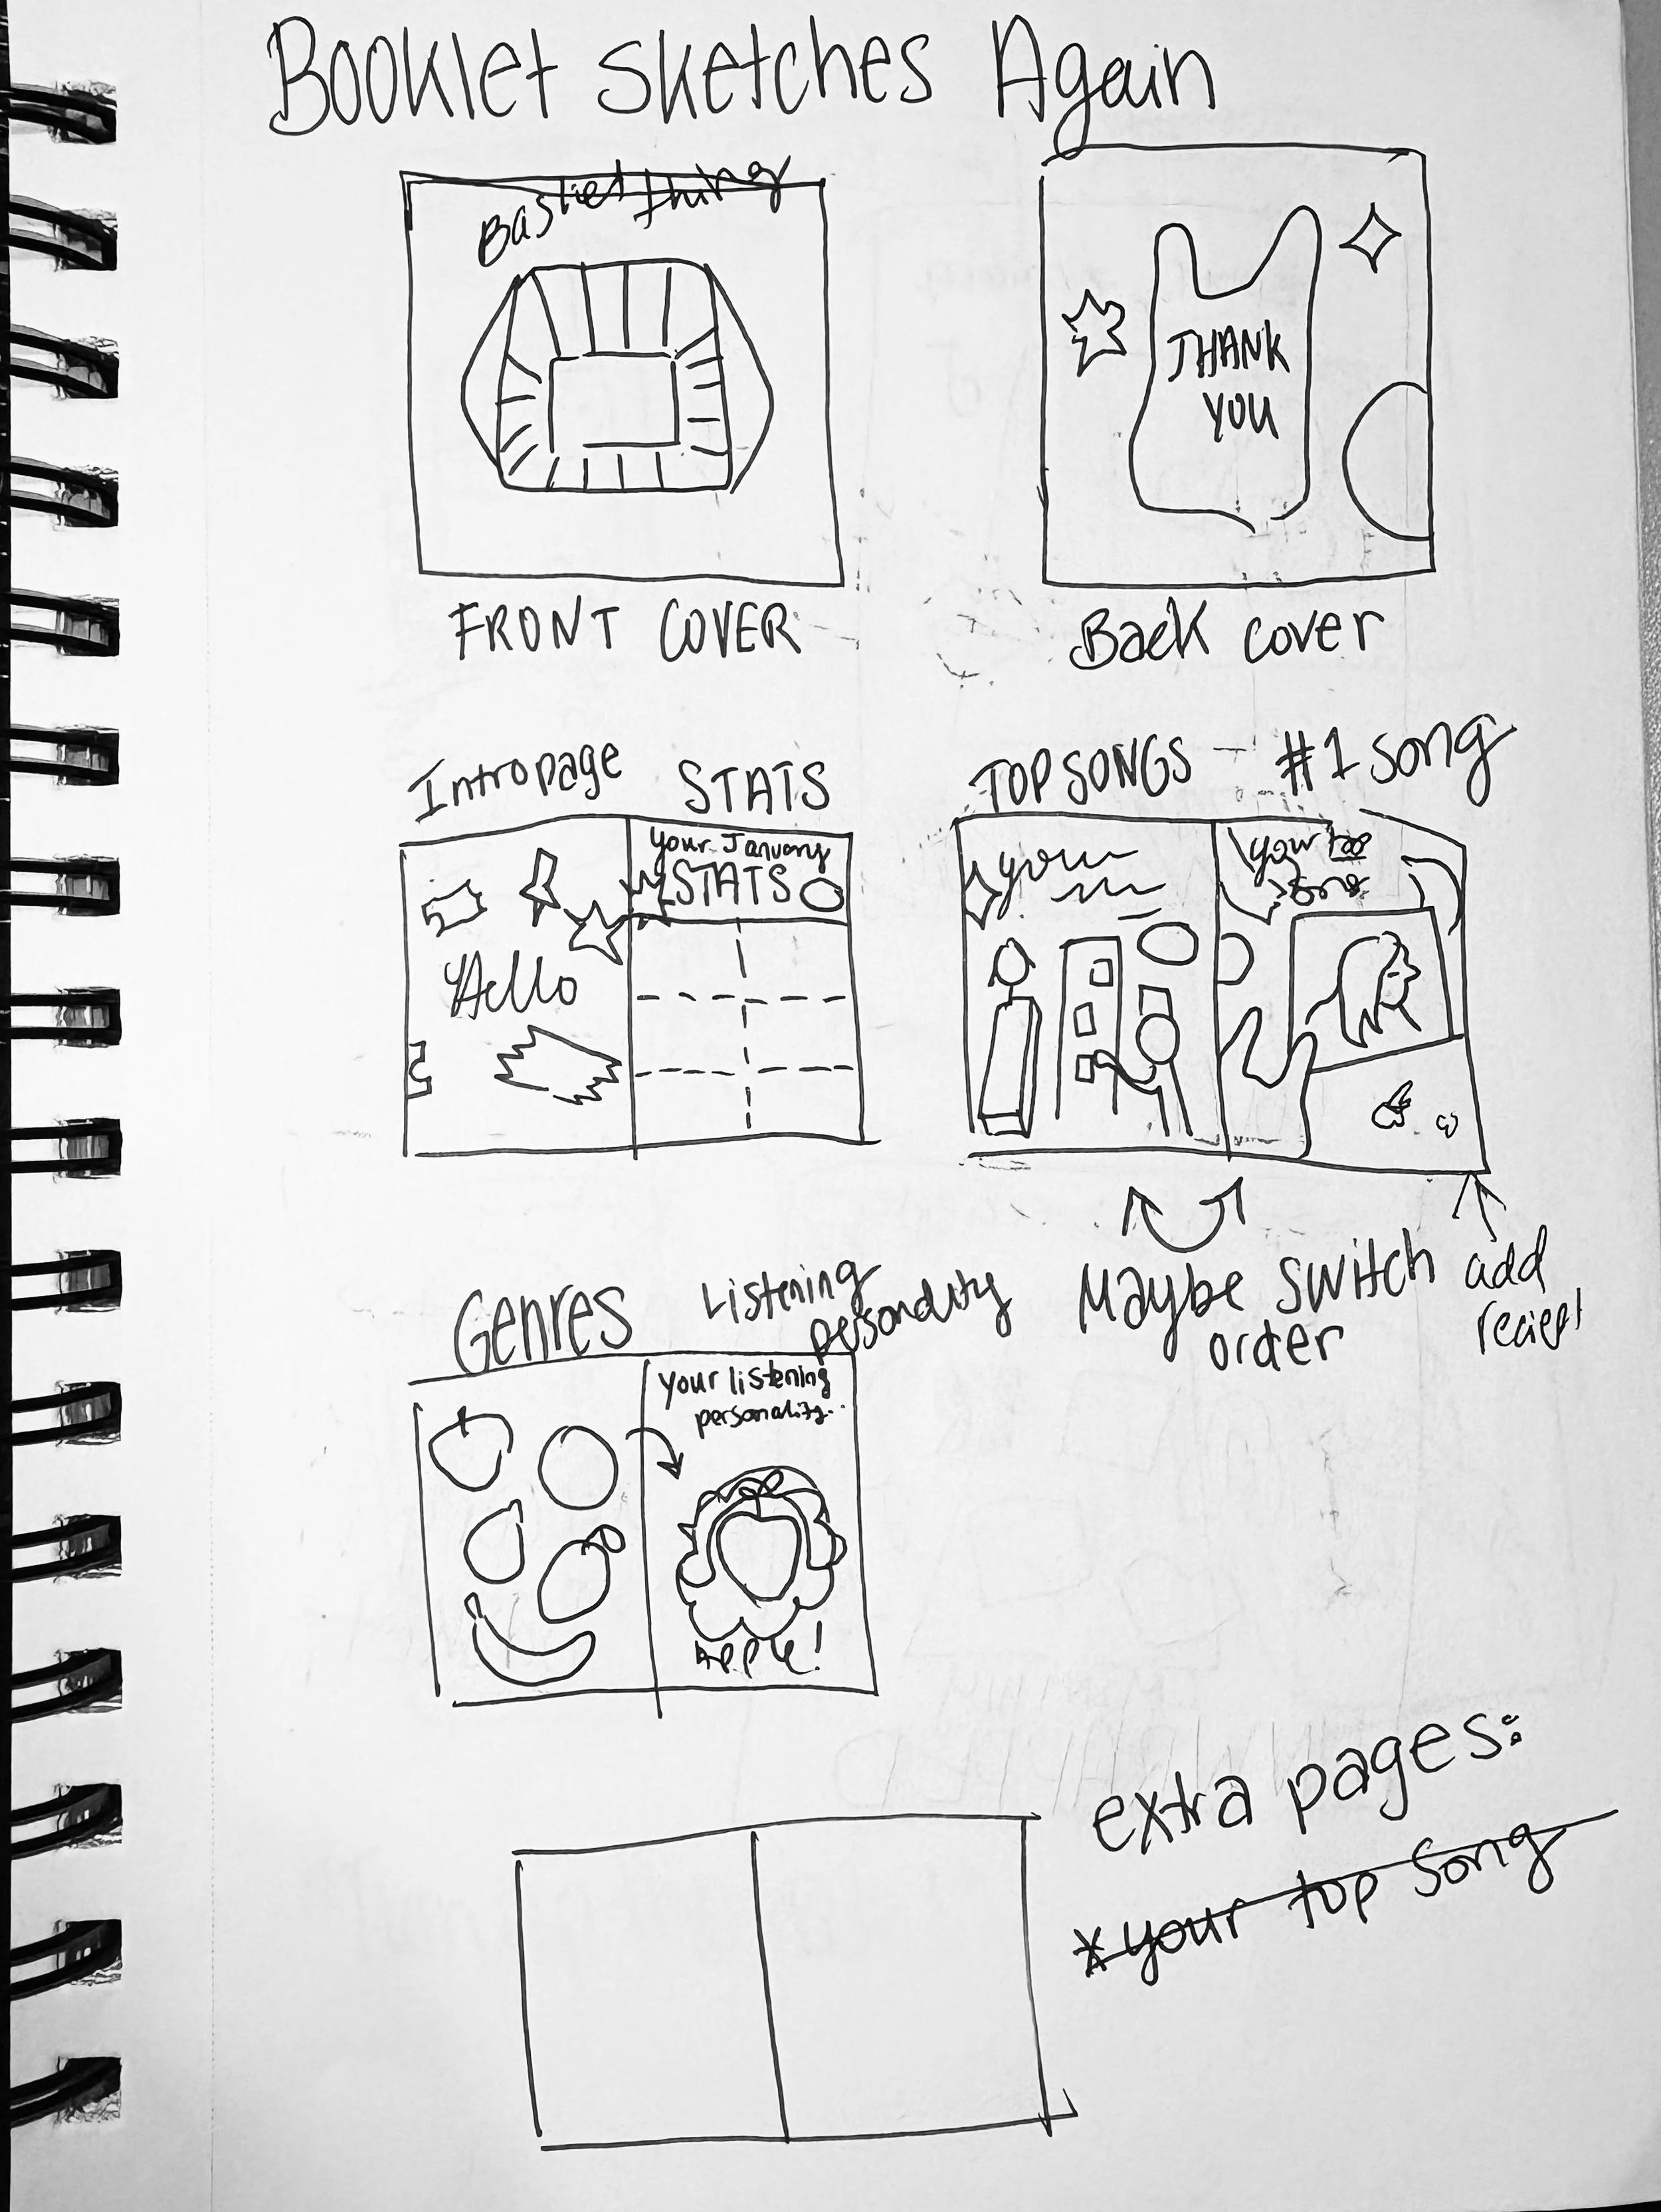 Booklet Sketches Again
Basket thing
THANK
YOU
FRONT COVER
Back cover
Intro page
STATS
your January
STATS
Hello
TOP SONGS
#1 song
your
your top
song
Maybe switch
order
add
reciept
Genres
Listening
personality
your listening
personality..
APPLE!
extra pages:
*your top song